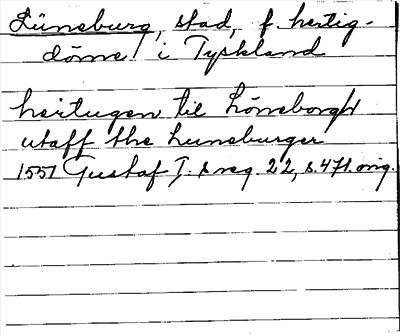 Lüneburg, stad, f. hertig-
döme i Tyskland
hertugen til Löneborgh
utaff the Luneburger
1551 Gustaf I:s reg. 22, s. 471. orig.